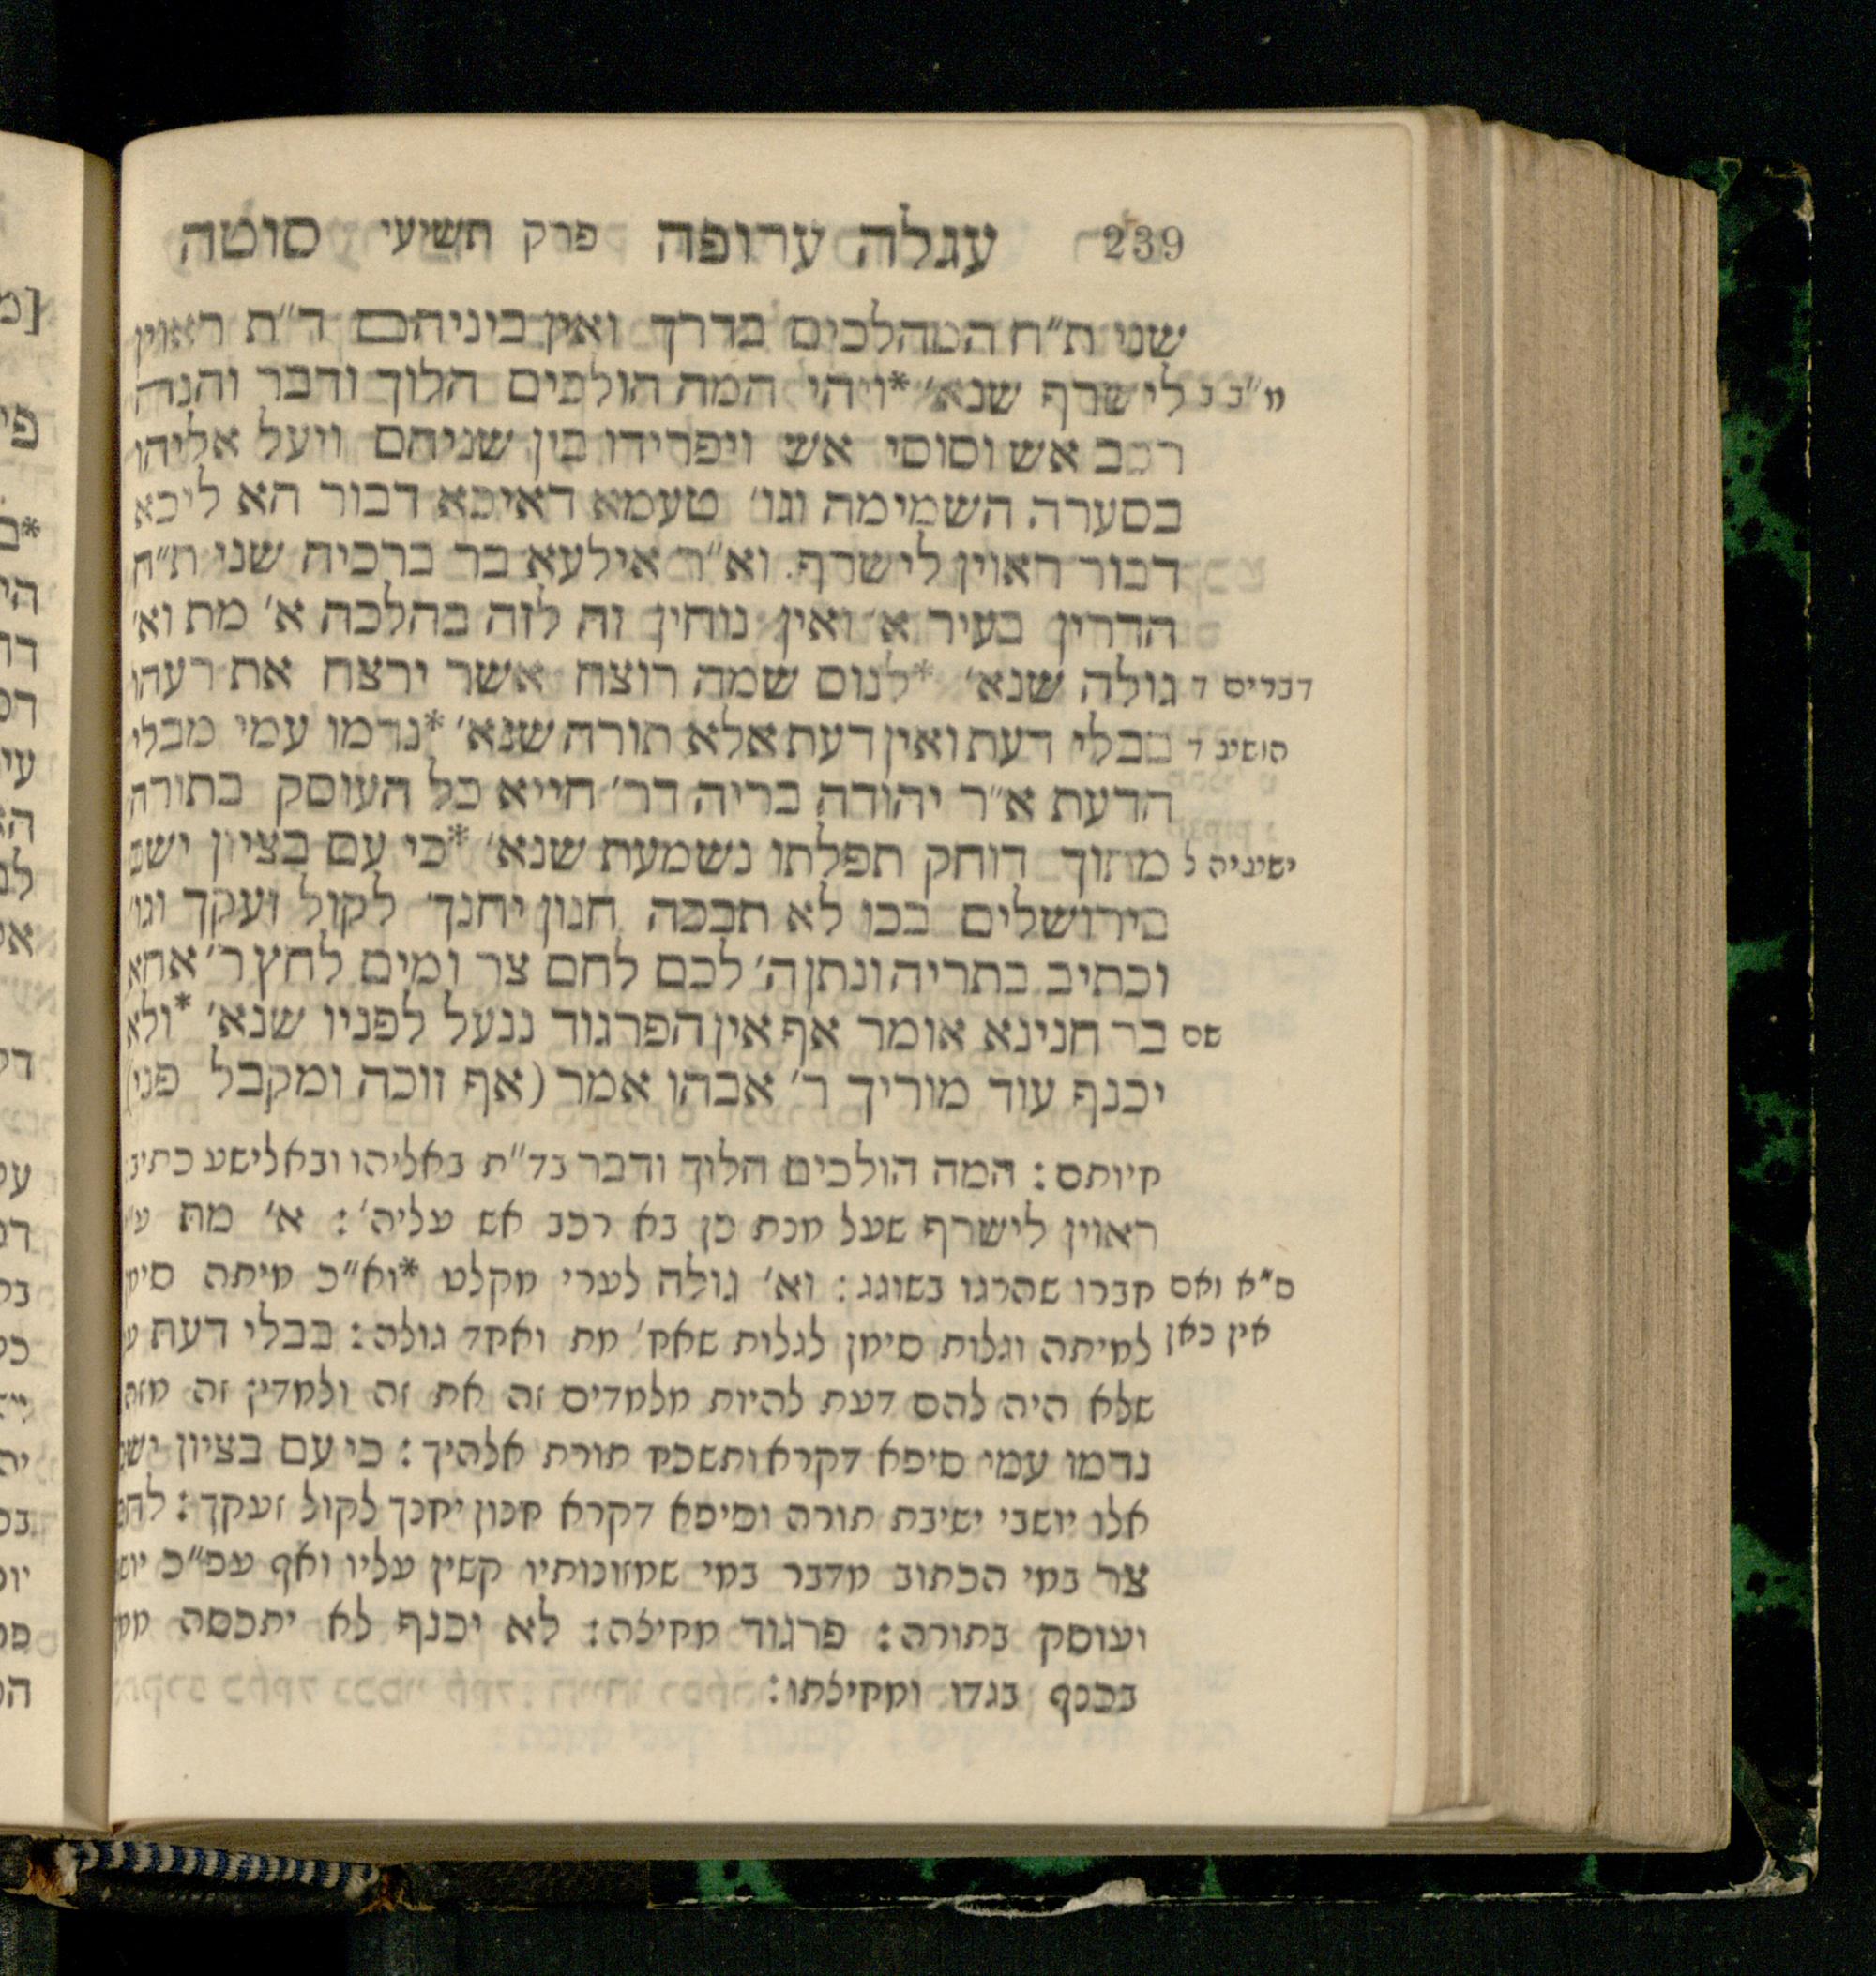 239 עגלה ערופה פרק תשיעי סוטה
שני ת״ח המהלכים בדרך ואין ביניהם ד״ת ראוין
מ״ב ב לישרף שנא׳ *ויהי המה הולכים הלוך ודבר והנה
רכב אש וסוסי אש ויפרידו בין שניהם ויעל אליהו
בסערה השמימה וגו׳ טעמא דאיכא דבור הא ליכא
דבור ראוין לישרף. וא״ר אילעא בר ברכיה שני ת״ח
הדרין בעיר א׳ ואין נוחין זה לזה בהלכה א׳ מת וא׳
דברים ד גולה שנא׳ *לנוס שמה רוצח אשר ירצח את רעהו
הושיע ד בבלי דעת ואין דעת אלא תורה שנא׳ *נדמו עמי מבלי
הדעת א״ר יהודה בריה דר׳ חייא כל העוסק בתורה
ישעיה ל מתוך דוחק תפלתו נשמעת שנא׳ *כי עם בציון ישב
בירושלים בכו לא תבכה חנון יחנך לקול זעקך וגו׳
וכתיב בתריה ונתן ה׳ לכם לחם צר ומים לחץ ר׳ אחא
שם בר חנינא אומר אף אין הפרגוד ננעל לפניו שנא׳ *ולא
יכנף עוד מוריך ר׳ אבהו אמר (אף זוכה ומקבל פני)
חיותם: המה הולכים הלוך ודבר בד״ת באליהו ובאלישע כתיב
ראוין לישרף שעל מנת כן בא רכב אש עליה׳: א׳ מת
ס״א ואם חברו שהרגו בשוגג: וא׳ גולה לערי מקלט *וא״כ מיתה סימן
אין כאן למיתה וגלות סימן לגלות שאח׳ מת ואחד גולה: בבלי דעת
שלא היה להם דעת להיות מלמדים זה את זה ולמדין זה מזה
נדמו עמי סיפא דקרא ותשכח תורת אלהיך: כי עם בציון ישב
אלו יושבי ישיבת תורה וסיפא דקרא חנון יחנך לקול זעקך: לחם
צר במי הכתוב מדבר במי שמזונותיו קשין עליו ואף עפ״כ יושב
ועוסק בתורה: פרגוד מחילה: לא יכנף לא יתכסה ממך
בכנף בגדו ומחילתו: